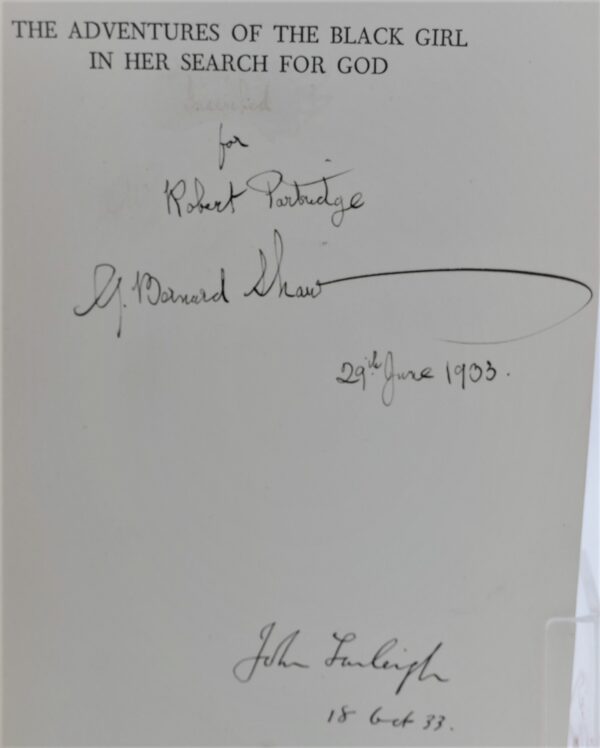 THE ADVENTURES OF THE BLACK GIRL
IN HER SEARCH FOR GOD
Inscribed
for
Robert Partridge
G. Bernard Shaw
29th June 1933.
John Farleigh
18 Oct 33.